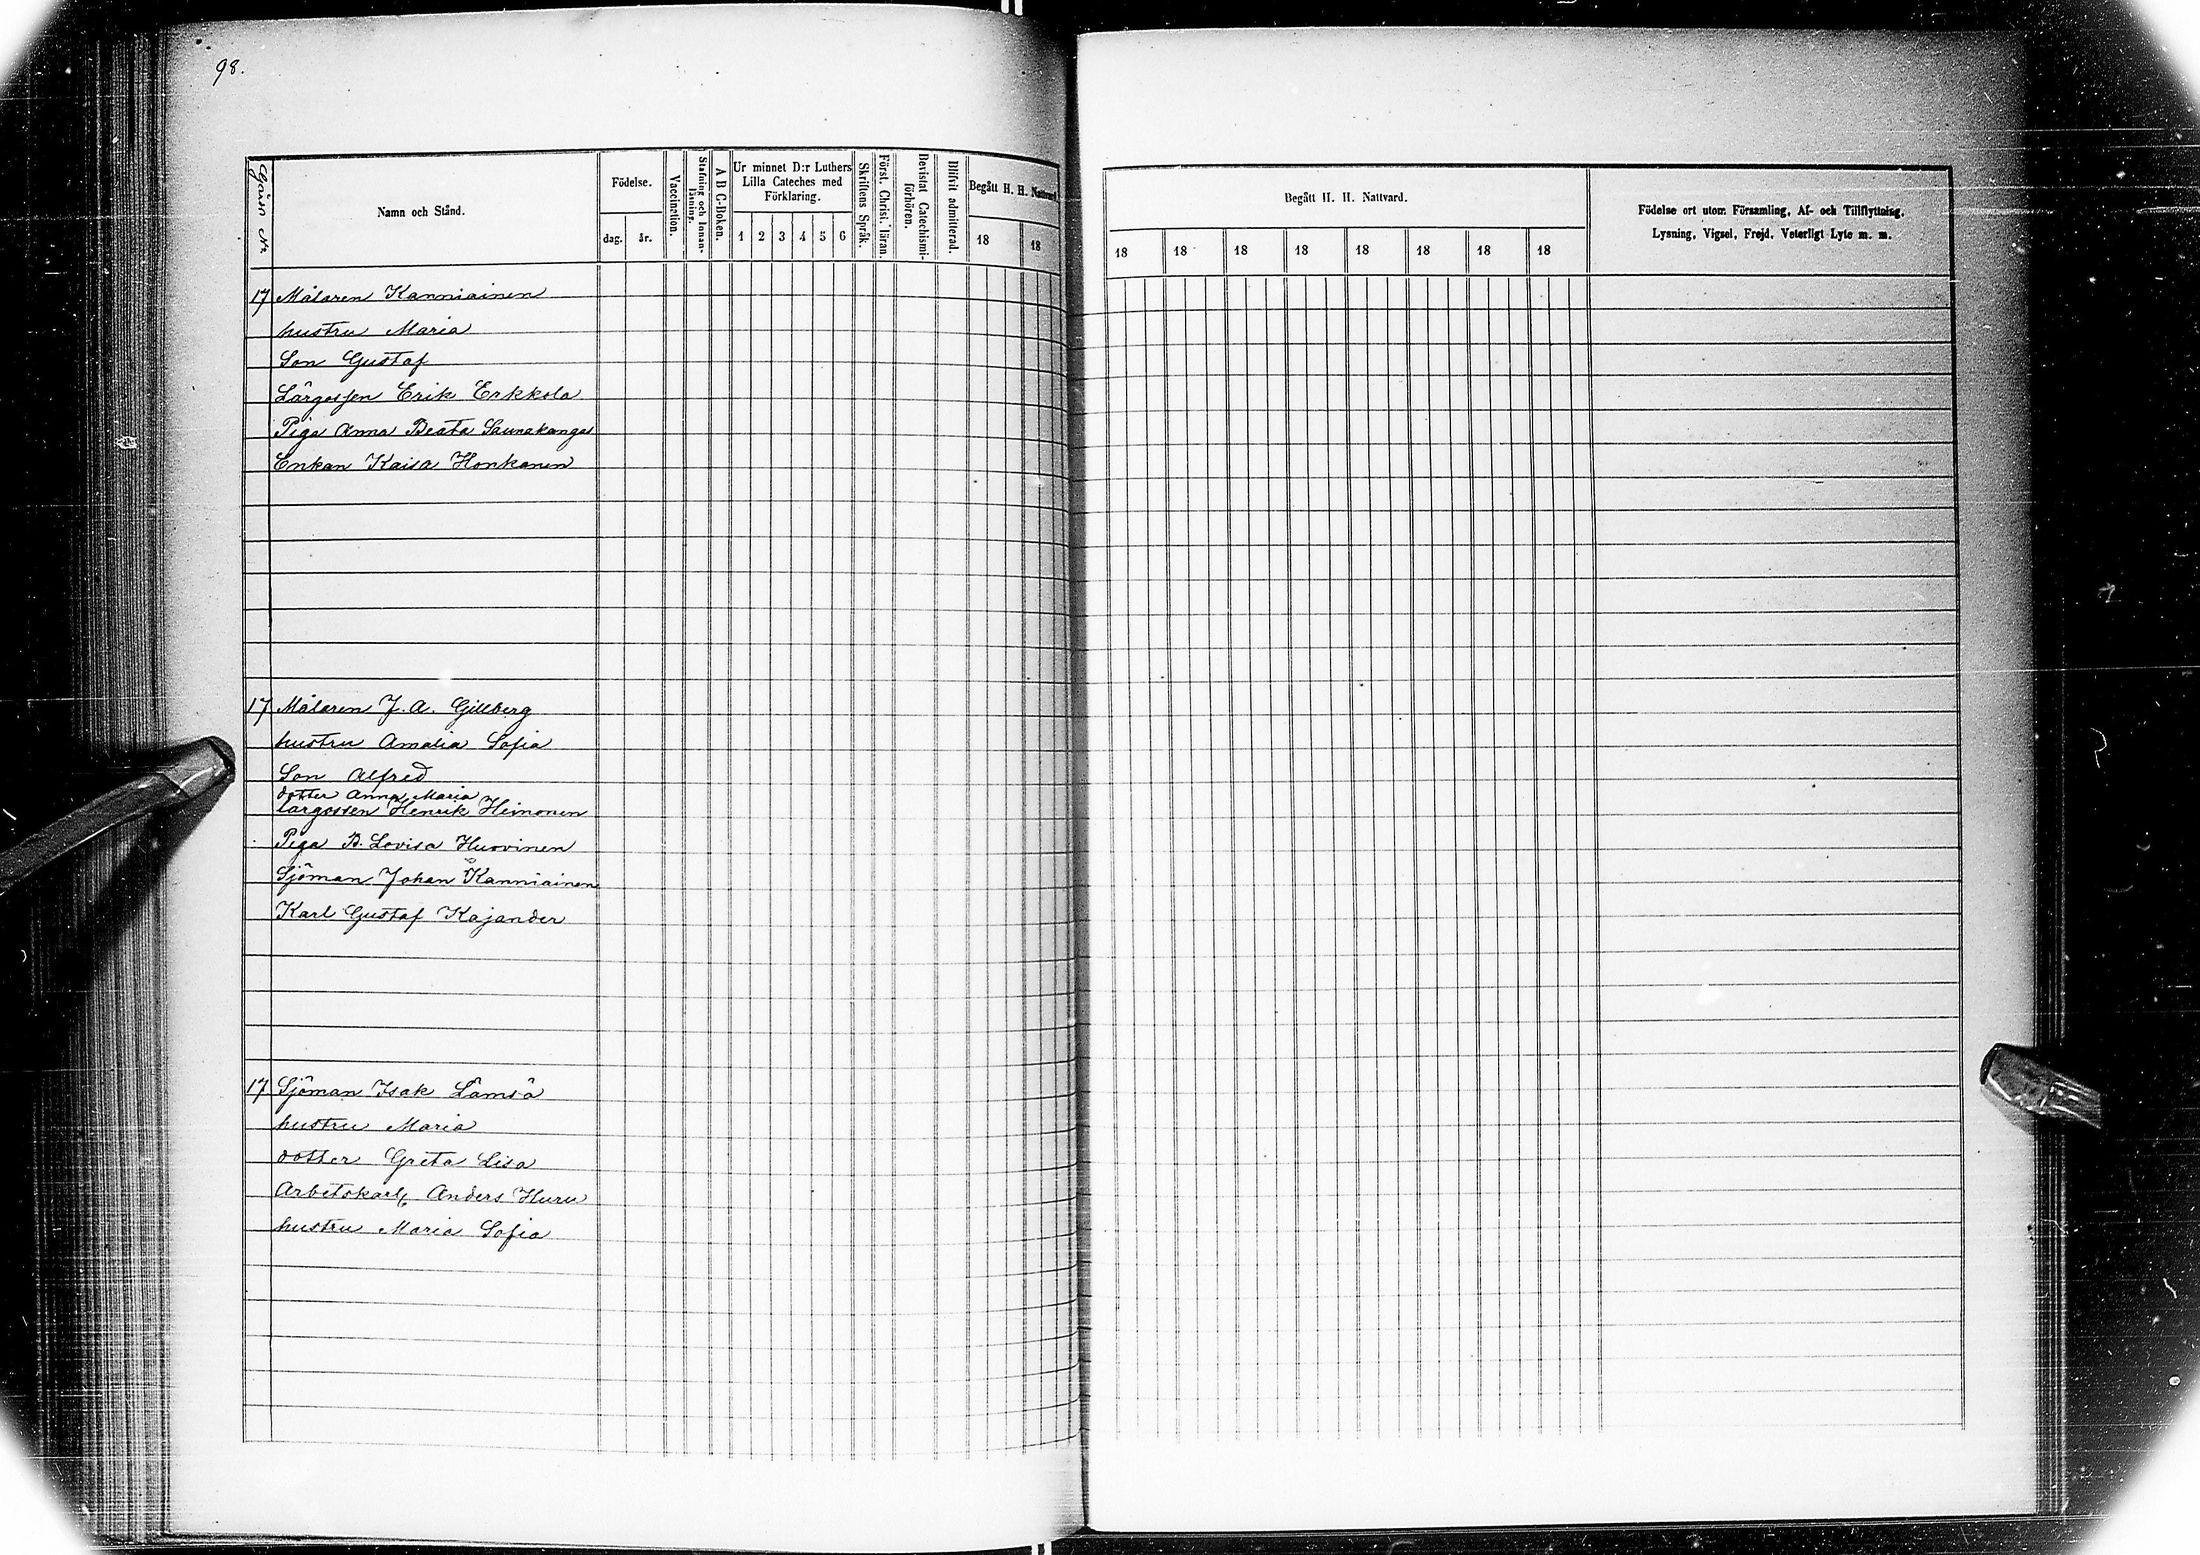 98.
Gårn Nr
Namn och Stånd.
Födelse.
dag. år.
Vaccinction.
Stafning och Innan-
läsning.
A B C-Boken.
Ur minnet D:r Luthers
Lilla Cateches med
Förklaring.
1 2 3 4 5 6
Skriftens Språk.
Först. Christ. läran.
Bevistat Catechismi-
förhören.
Blifvit admitterad.
Begått H. H. Nattvard.
18 18
Begått H. H. Nattvard.
18 18 18 18 18 18 18 18
Födelse ort utom Församling, Af- och Tillflyttning,
Lysning, Vigsel, Frejd, Veterligt Lyte m. m.
17 Målaren Kanniainen
hustru Maria
Son Gustaf
Lärgossen Erik Erkkola
Piga Anna Beata Saunakangas
Enkan Kaisa Honkanen
17 Målaren J. A. Gillberg
hustru Amalia Sofia
Son Alfred
dotter Anna Maria
lärgossen Henrik Heinonen
Piga B. Lovisa Huovinen
Sjöman Johan Kanniainen
Karl Gustaf Kajander
17 Sjöman Isak Lämsä
hustru Maria
dotter Greta Lisa
Arbetskarl Anders Huru
hustru Maria Sofia